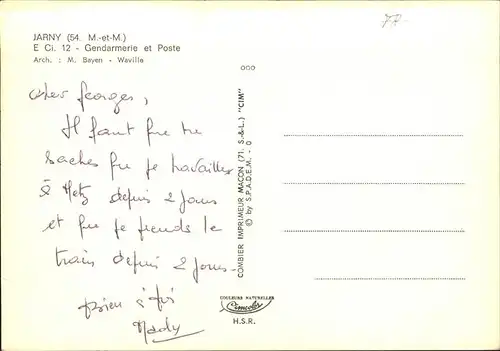 JARNY (54. M.-et-M.)
E Ci. 12 - Gendarmerie et Poste
Arch. : M. Bayen - Waville
cher Georges,
Il faut que tu
saches que je travailles
à Metz depuis 2 jours
et que je prends le
train depuis 2 jours.
bien à toi
Mady
COMBIER IMPRIMEUR MACON (71. S.-&-L.) "CIM"
© by S.P.A.D.E.M. - 0
COULEURS NATURELLES
Cimcolor
H.S.R.